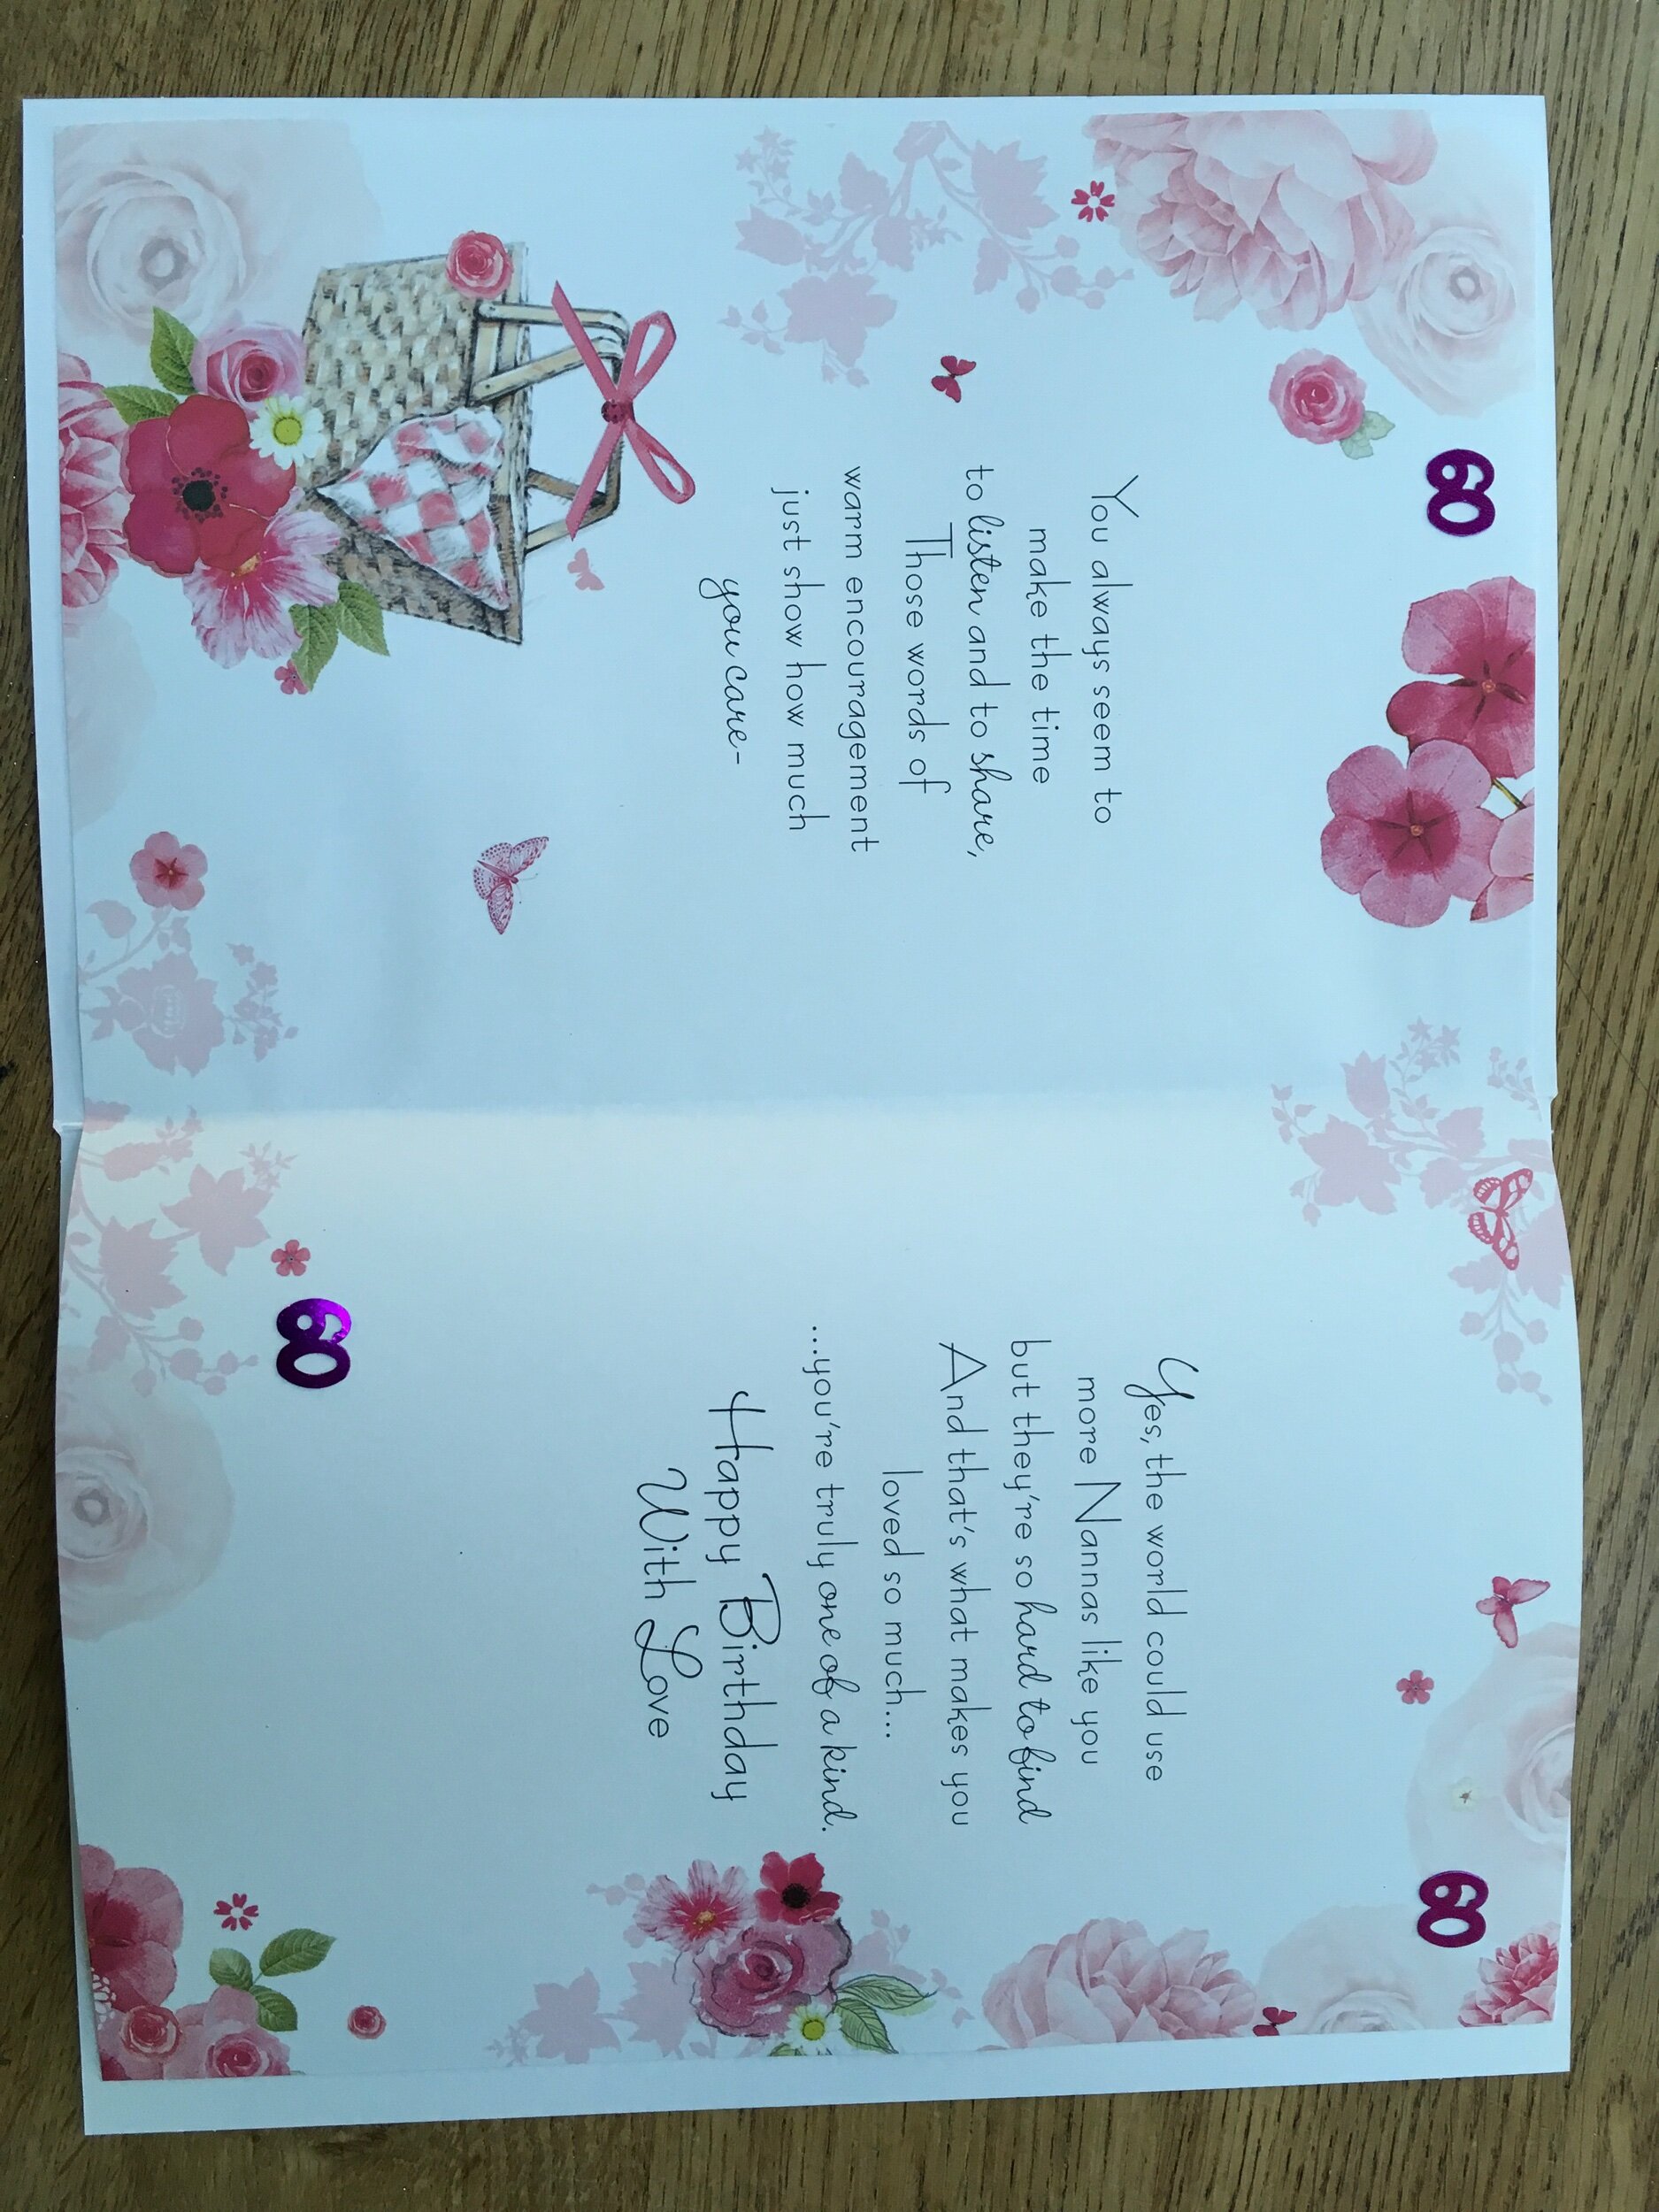 60
You always seem to
make the time
to listen and to share,
Those words of
warm encouragement
just show how much
you care-
60
Yes, the world could use
more Nannas like you
but they're so hard to find
And that's what makes you
loved so much...
...you're truly one of a kind.
Happy Birthday
With Love
60